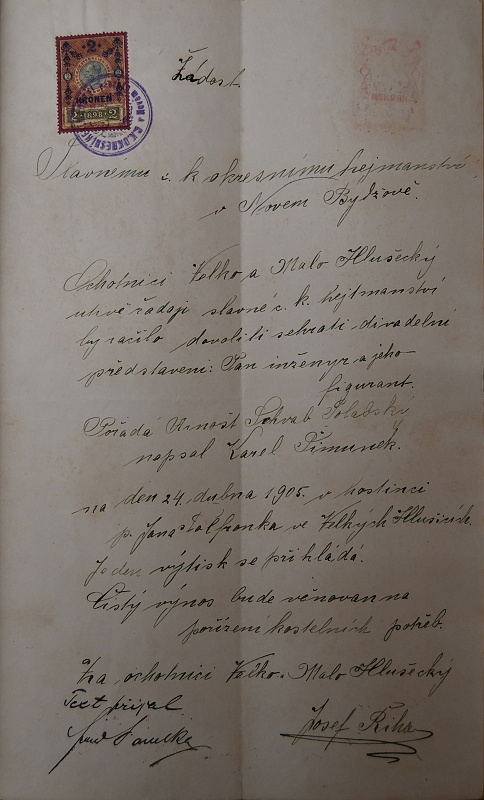 2
KRONEN
2 1898 2
C.K. OKRESNÍ
Žádost.
Slavnému c. k okresnímu hejmanství
v Novém Bydžově.
Ochotníci Velko a Malo Hlušecký
uctivě žádají slavné c. k. hejtmanství
by račilo dovoliti sehrati divadelní
představení: Pan inženýr a jeho
figurant.
Pořádá Arnošt Schvab Polabský
napsal Karel Šimůnek.
na den 24. dubna 1905. v hostinci
p. Jana ve Velkých Hlušicích.
Jeden výtisk se přikládá.
Čistý výnos bude věnovan na
pořízení kostelních potřeb.
Za ochotníci Velko-Malo Hlušecký
Text přijal
Josef Říha